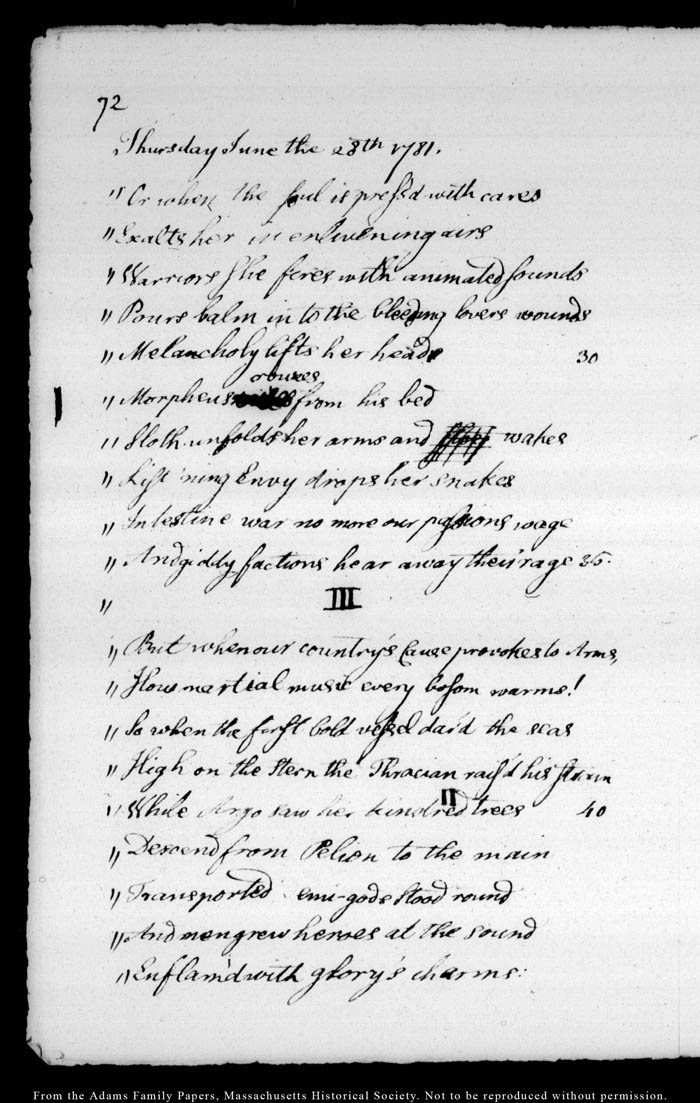 72
Thursday June the 28th 1781.
" Or when the soul is press'd with cares
" Exalts her in enlivening airs
" Warriors She fires with animated sounds
" Pours balm in to the bleeding lovers wounds
" Melancholy lifts her head 30
rouzes
" Morpheus from his bed
" Sloth unfolds her arms and wakes
" List'ning Envy drops her snakes
" Intestine war no more our passions wage
" And giddy factions hear away their rage 35.
" III
" But when our country's Cause provokes to Arms,
" How martial music every bosom warms!
" So when the first bold vessel dar'd the seas
" High on the Stern the Thracian rais'd his strain
" While Argo saw her kindred trees 40
" Descend from Pelion to the main
" Transported emi-gods stood round
" And men grew heroes at the sound
" Enflam'd with glory's charms:
From the Adams Family Papers, Massachusetts Historical Society. Not to be reproduced without permission.